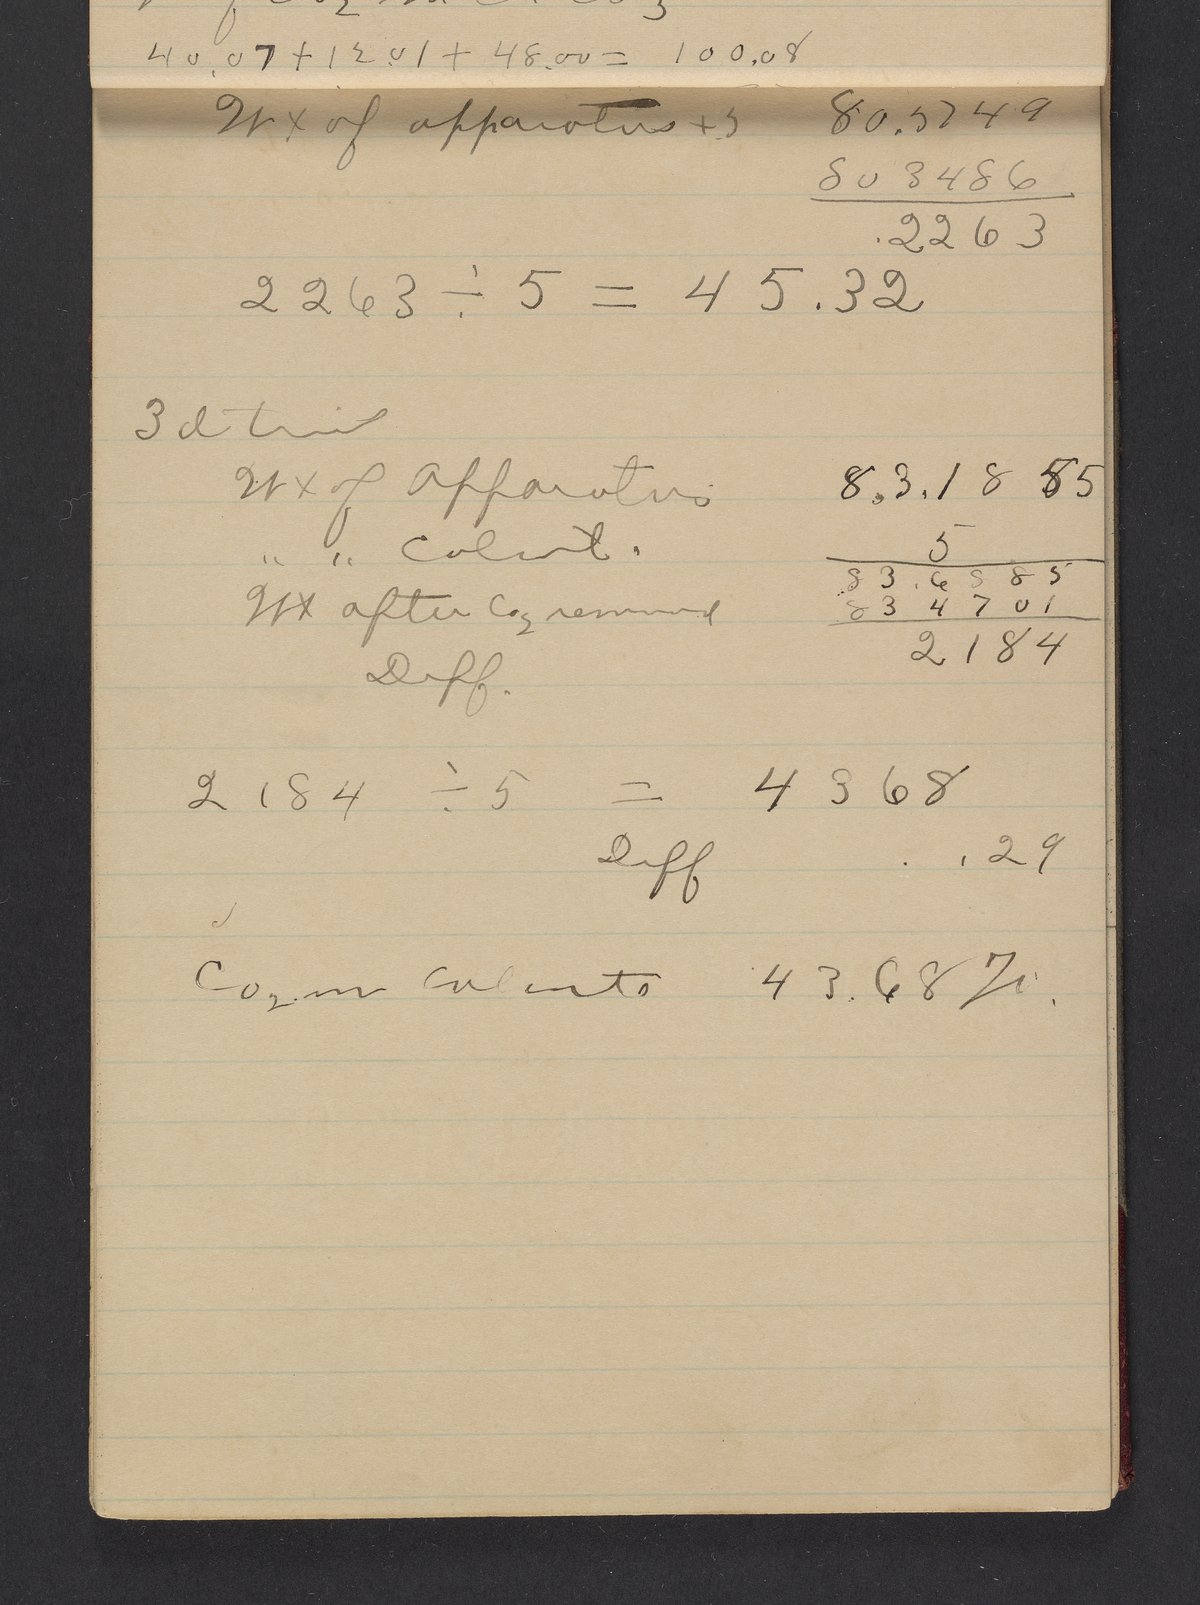 of CO2 in Ca CO3
40.07 + 12.01 + 48.00 = 100.08
Wt of apparatus + 5 80.5749
803486
.2263
2263 ÷ 5 = 45.32
3d trial
Wt of apparatus 8.3.1885
" " Calcite. 5
83.6885
834701
Wt after CO2 removed
2184
Diff.
2184 ÷ 5 = 4368
Diff .29
CO2 in Calcite 43.68 %.